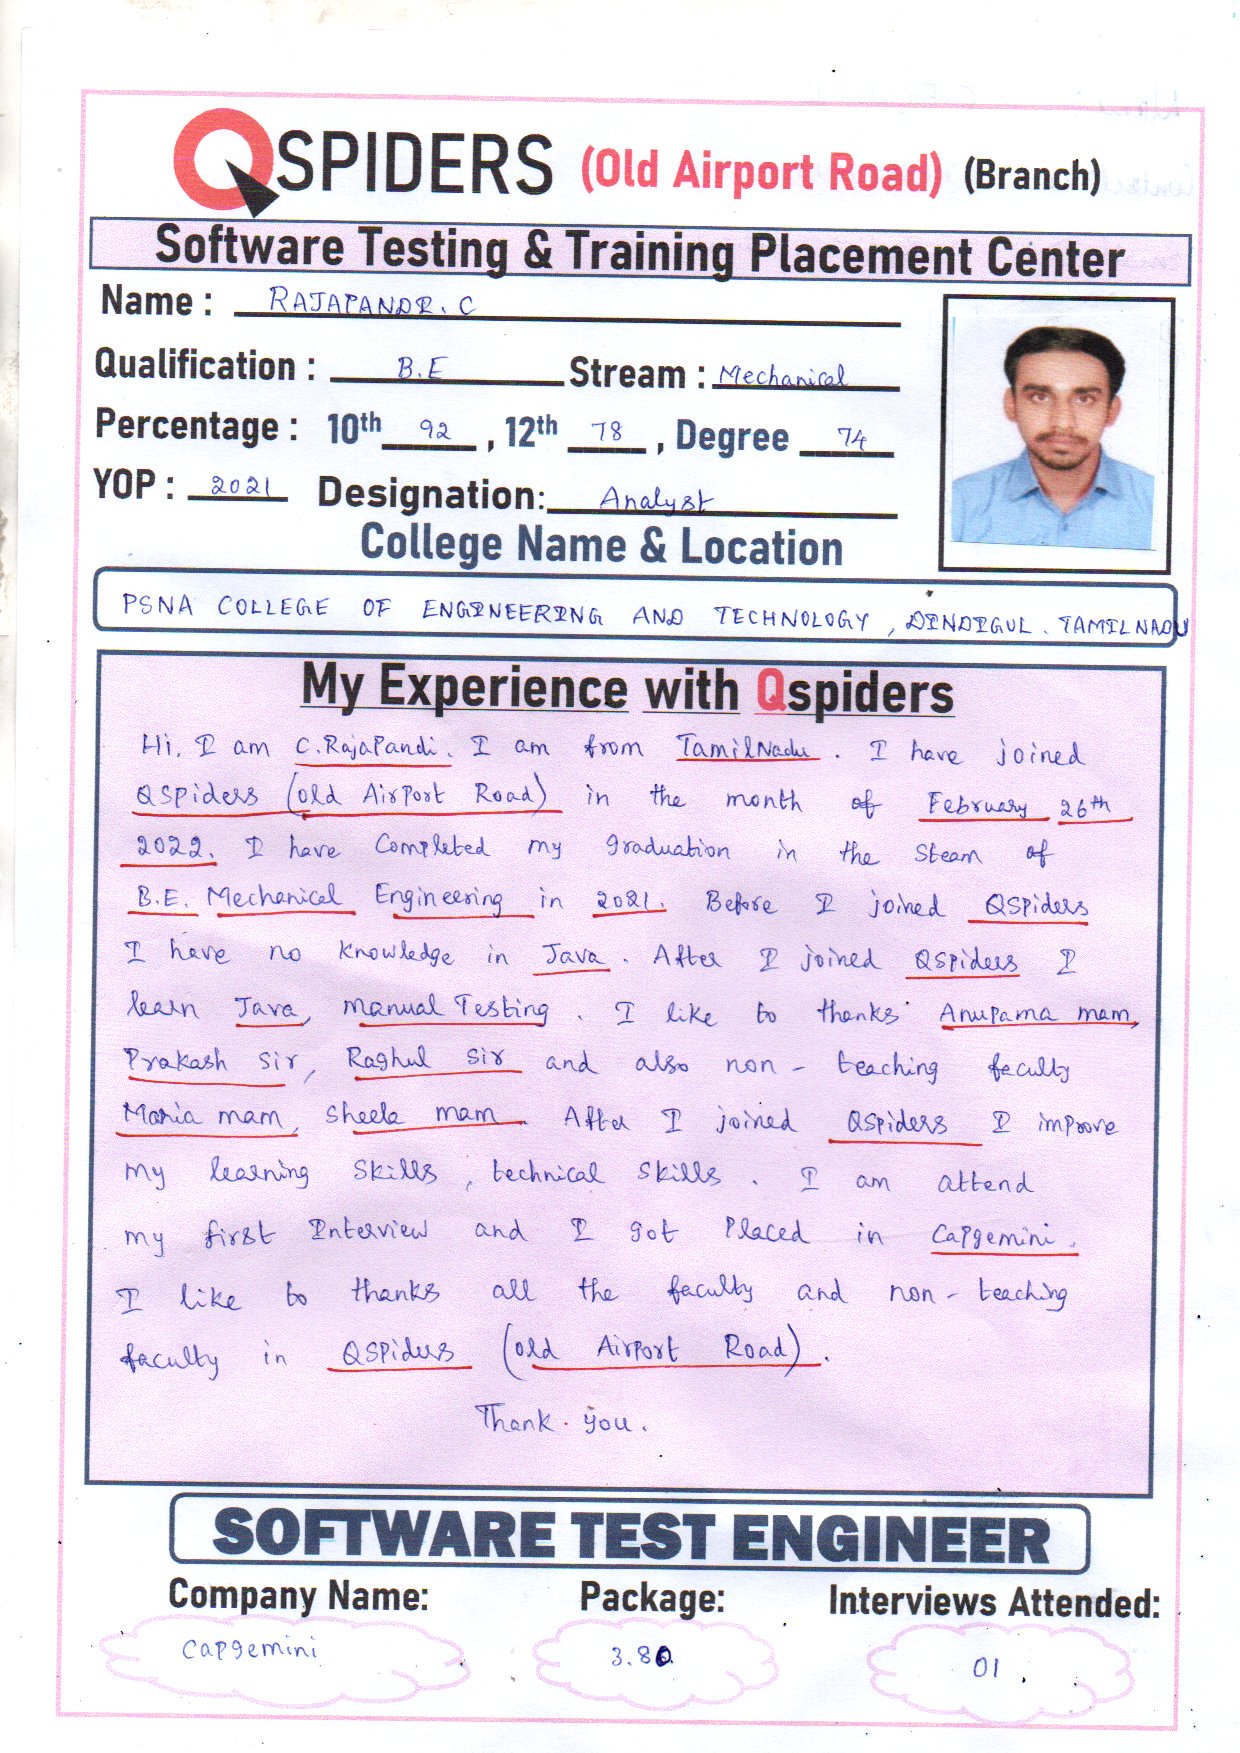 QSPIDERS (Old Airport Road) (Branch)
Software Testing & Training Placement Center
Name : RAJAPANDI. C
Qualification : B.E Stream : Mechanical
Percentage : 10th 92 , 12th 78 , Degree 74
YOP : 2021 Designation: Analyst
College Name & Location
PSNA COLLEGE OF ENGINEERING AND TECHNOLOGY , DINDIGUL . TAMILNADU
My Experience with Qspiders
Hi, I am C.RajaPandi. I am from TamilNadu . I have joined
QSpiders (old AirPort Road) in the month of February 26th
2022. I have Completed my graduation in the Steam of
B.E. Mechanical Engineering in 2021. Before I joined QSpiders
I have no knowledge in Java . After I joined QSpiders I
learn Java, Manual Testing . I like to thanks Anupama mam,
Prakash Sir, Raghul Sir and also non - teaching faculty
Maria mam, Sheela mam. After I joined QSpiders I improve
my learning Skills , technical Skills . I am attend
my first Interview and I got Placed in Capgemini.
I like to thanks all the faculty and non - teaching
faculty in QSpiders (old AirPort Road).
Thank you.
SOFTWARE TEST ENGINEER
Company Name: Package: Interviews Attended:
Capgemini 3.80 01